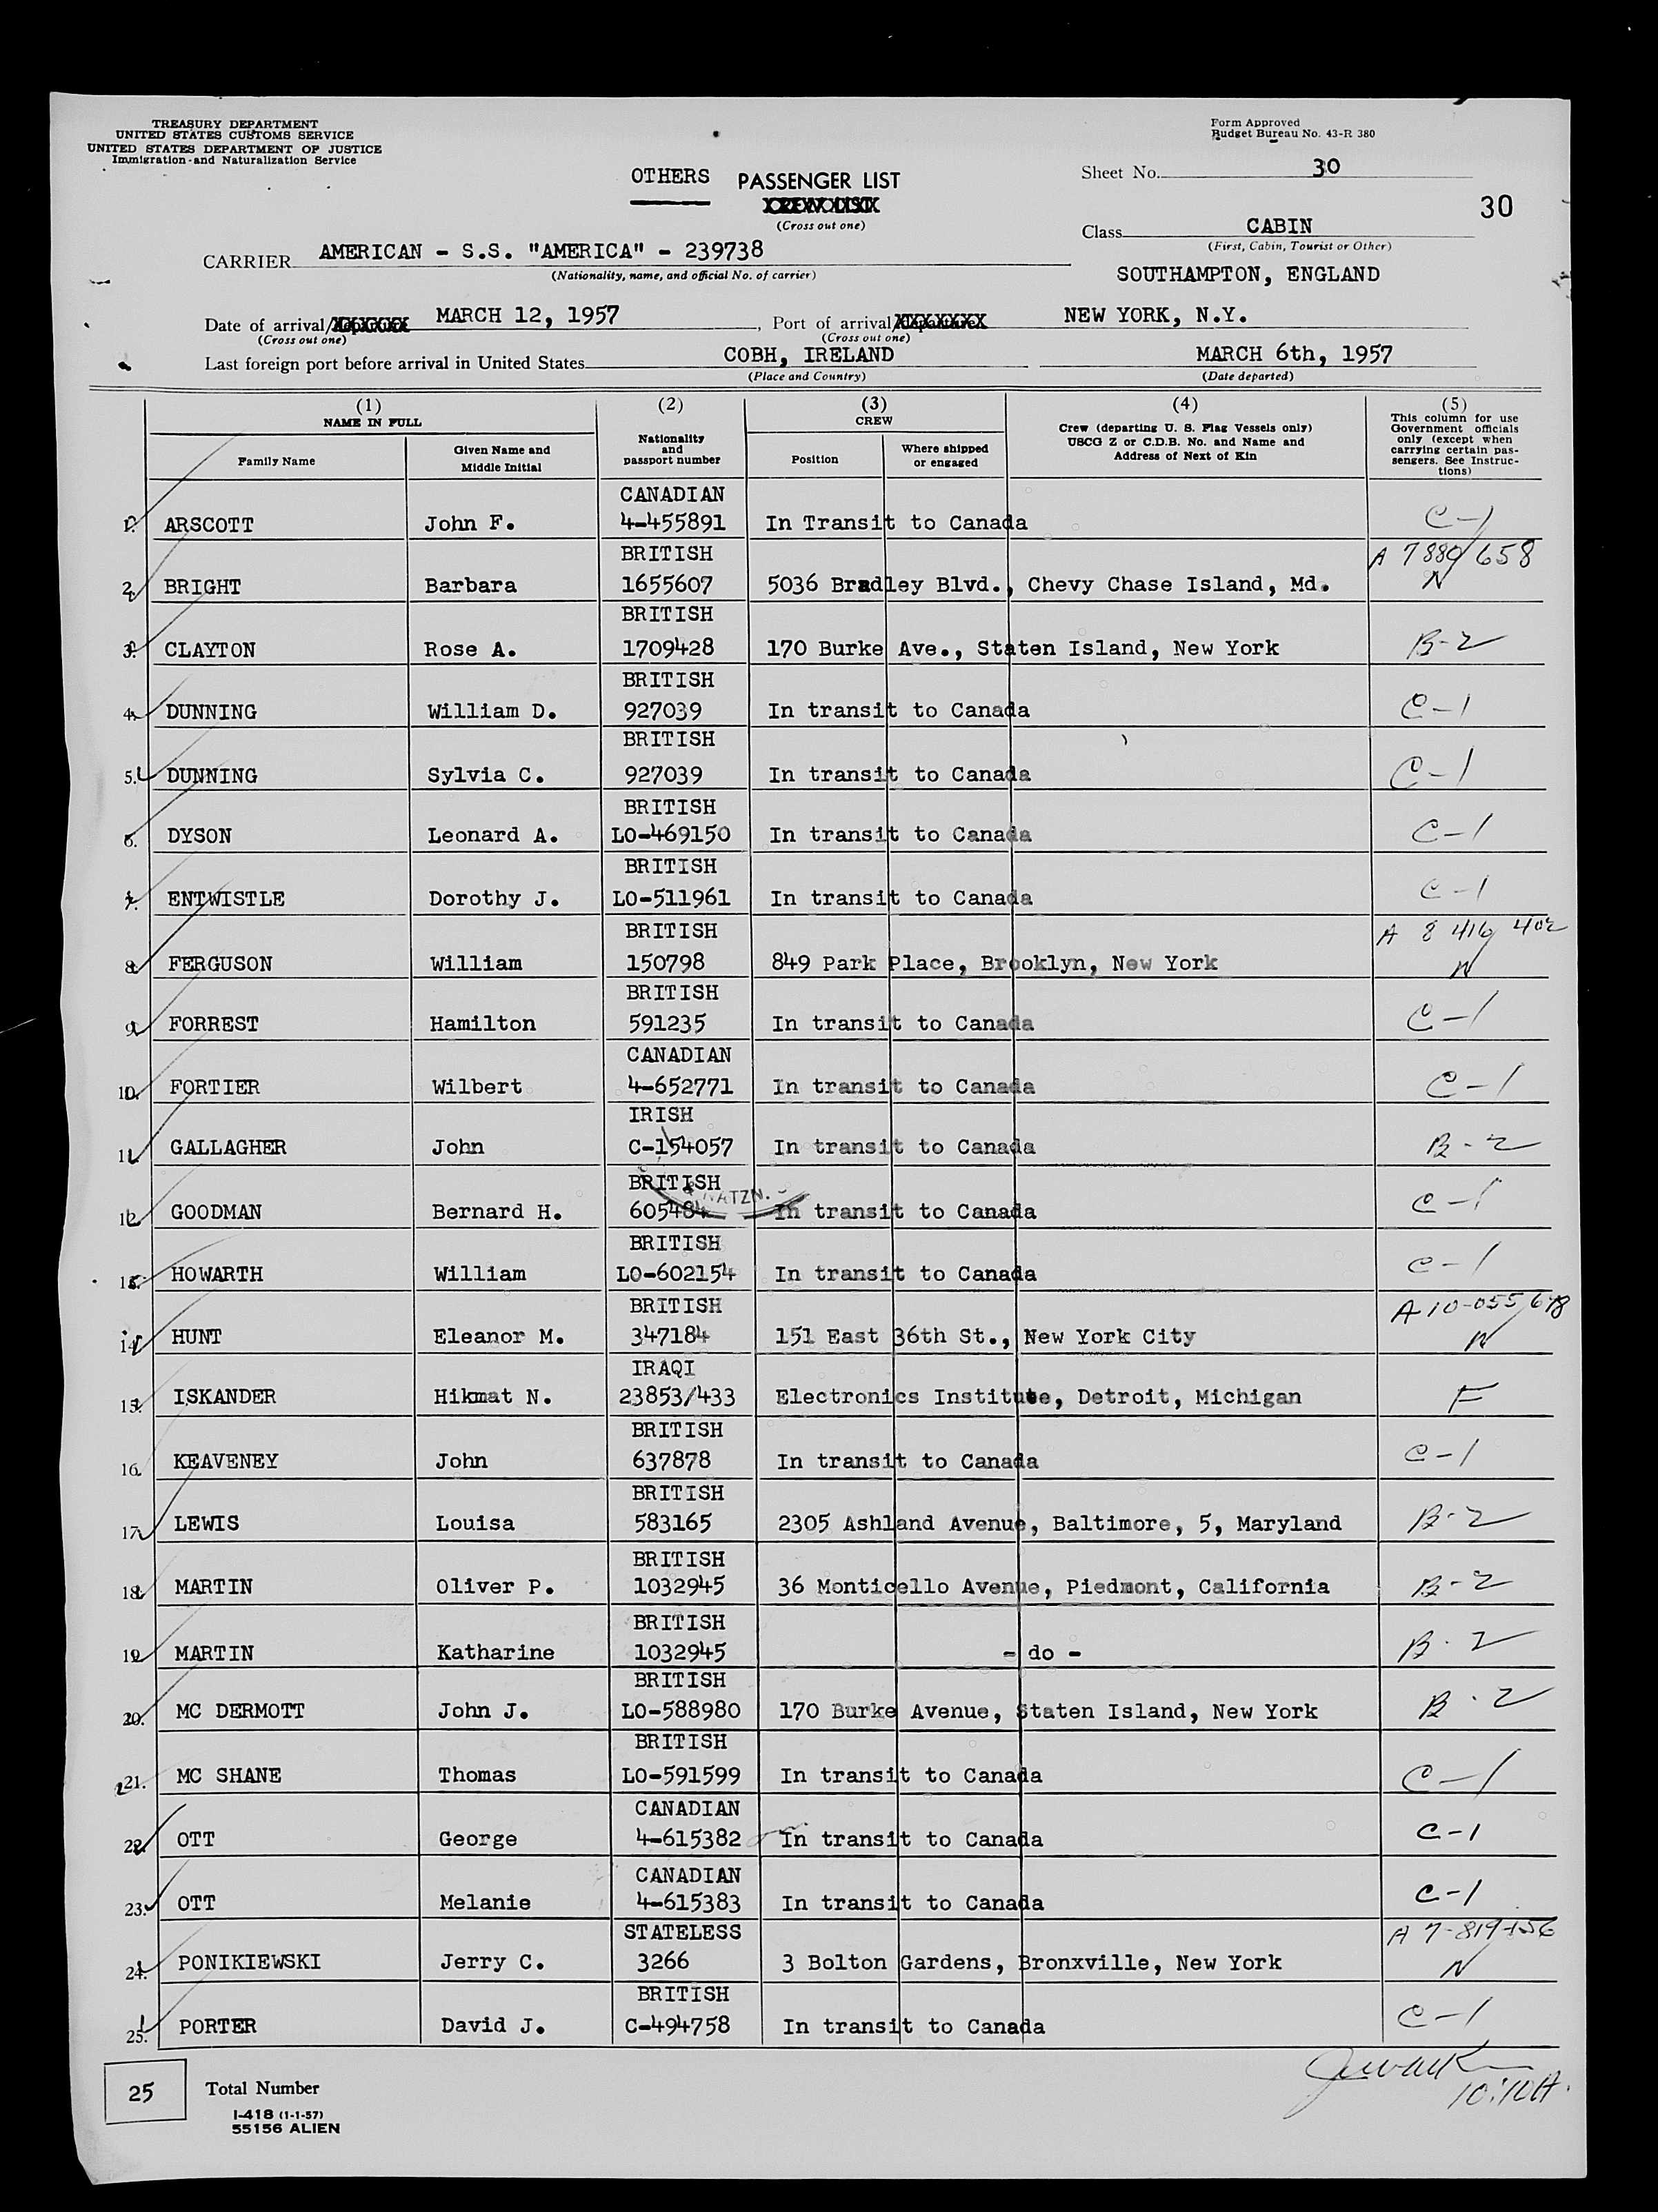 TREASURY DEPARTMENT
UNITED STATES CUSTOMS SERVICE
UNITED STATES DEPARTMENT OF JUSTICE
Immigration and Naturalization Service
Form Approved
Budget Bureau No. 43-R 380
OTHERS PASSENGER LIST
(Cross out one)
Sheet No. 30
30
Class CABIN
(First, Cabin, Tourist or Other)
CARRIER AMERICAN - S.S. "AMERICA" - 239738
(Nationality, name, and official No. of carrier)
SOUTHAMPTON, ENGLAND
Date of arrival/ MARCH 12, 1957, Port of arrival/ NEW YORK, N.Y.
(Cross out one) (Cross out one)
Last foreign port before arrival in United States COBH, IRELAND MARCH 6th, 1957
(Place and Country) (Date departed)
(1) NAME IN FULL
Family Name
Given Name and Middle Initial
(2)
Nationality and passport number
(3) CREW
Position
Where shipped or engaged
(4)
Crew (departing U. S. Flag Vessels only)
USCG Z or C.D.B. No. and Name and
Address of Next of Kin
(5)
This column for use
Government officials
only (except when
carrying certain pas-
sengers. See Instruc-
tions)
CANADIAN
1. ARSCOTT John F. 4-455891 In Transit to Canada C-1
BRITISH A 7880 658
2. BRIGHT Barbara 1655607 5036 Bradley Blvd., Chevy Chase Island, Md. N
BRITISH
3. CLAYTON Rose A. 1709428 170 Burke Ave., Staten Island, New York B-2
BRITISH
4. DUNNING William D. 927039 In transit to Canada C-1
BRITISH
5. DUNNING Sylvia C. 927039 In transit to Canada C-1
BRITISH
6. DYSON Leonard A. LO-469150 In transit to Canada C-1
BRITISH
7. ENTWISTLE Dorothy J. LO-511961 In transit to Canada C-1
BRITISH A 8 416 402
8. FERGUSON William 150798 849 Park Place, Brooklyn, New York N
BRITISH
9. FORREST Hamilton 591235 In transit to Canada C-1
CANADIAN
10. FORTIER Wilbert 4-652771 In transit to Canada C-1
IRISH
11. GALLAGHER John C-154057 In transit to Canada B-2
BRITISH
NATZN.
12. GOODMAN Bernard H. 605484 In transit to Canada C-1
BRITISH
13. HOWARTH William LO-602154 In transit to Canada C-1
BRITISH A10-055 678
14. HUNT Eleanor M. 347184 151 East 36th St., New York City N
IRAQI
15. ISKANDER Hikmat N. 23853/433 Electronics Institute, Detroit, Michigan F
BRITISH
16. KEAVENEY John 637878 In transit to Canada C-1
BRITISH
17. LEWIS Louisa 583165 2305 Ashland Avenue, Baltimore, 5, Maryland B-2
BRITISH
18. MARTIN Oliver P. 1032945 36 Monticello Avenue, Piedmont, California B-2
BRITISH
19. MARTIN Katharine 1032945 - do - B-2
BRITISH
20. MC DERMOTT John J. LO-588980 170 Burke Avenue, Staten Island, New York B-2
BRITISH
21. MC SHANE Thomas LO-591599 In transit to Canada C-1
CANADIAN
22. OTT George 4-615382 In transit to Canada C-1
CANADIAN
23. OTT Melanie 4-615383 In transit to Canada C-1
STATELESS A 7-819-156
24. PONIKIEWSKI Jerry C. 3266 3 Bolton Gardens, Bronxville, New York N
BRITISH
25. PORTER David J. C-494758 In transit to Canada C-1
25 Total Number
I-418 (1-1-57)
55156 ALIEN